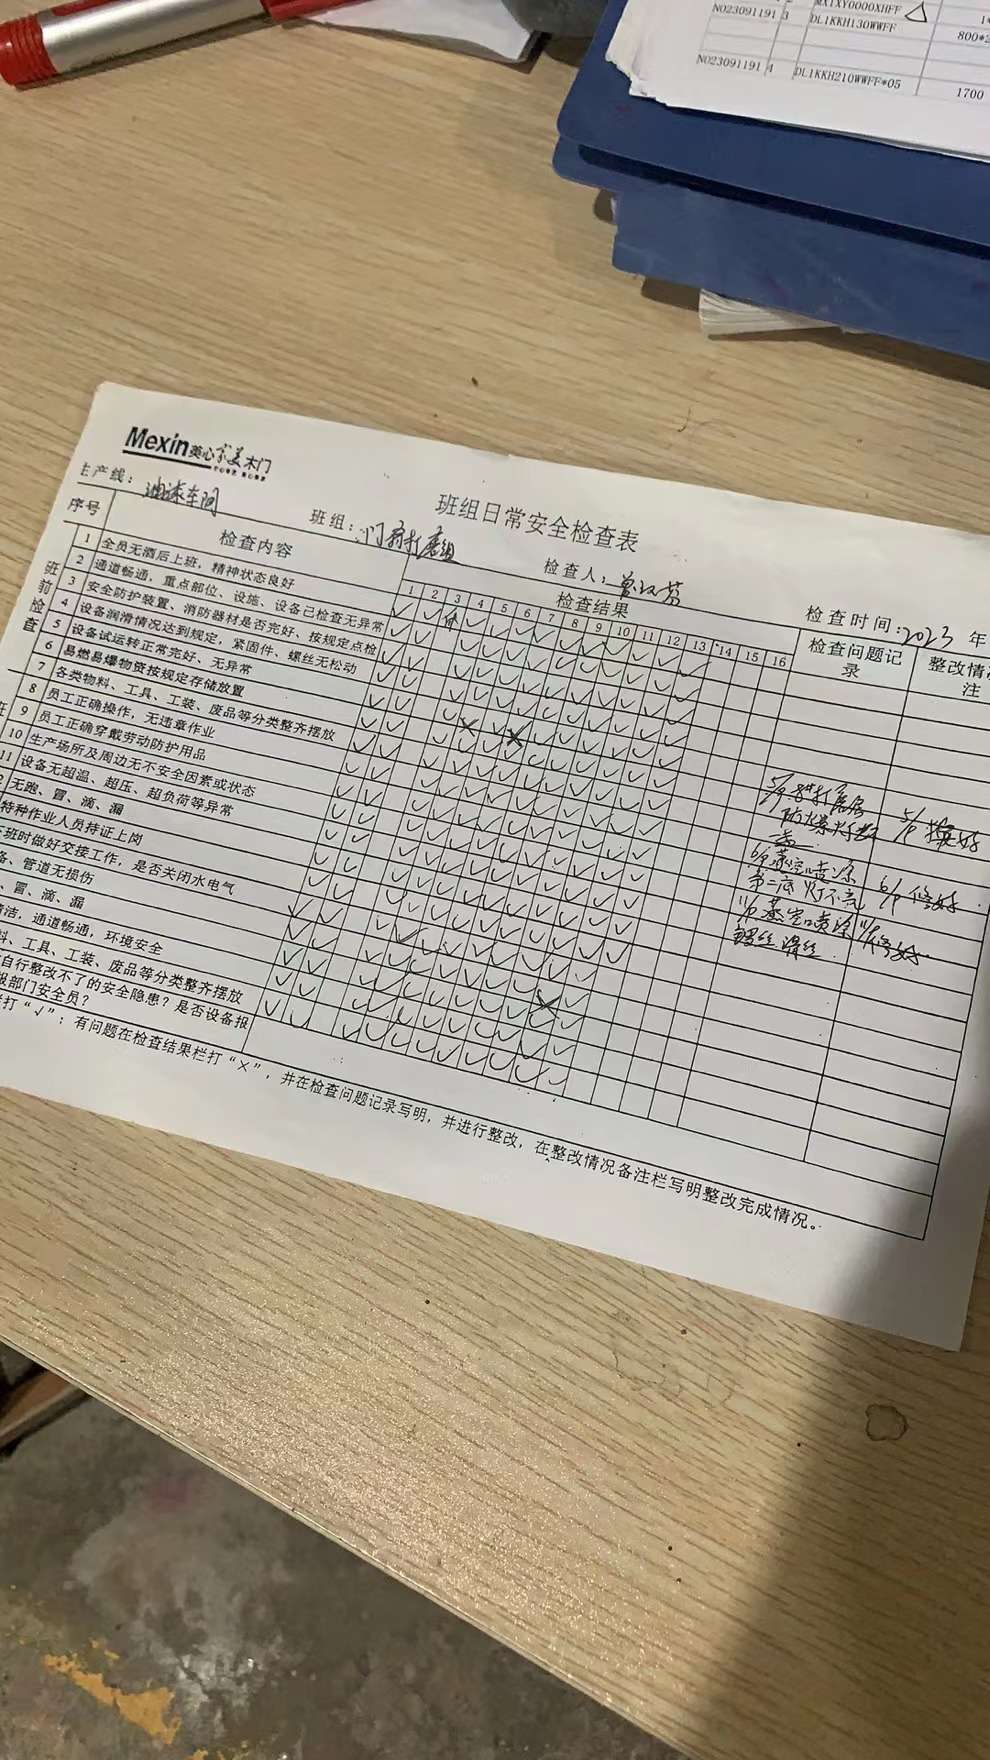 MX1XY0000XHFF
NO23091191 3 DL1KKH130WWFF
NO23091191 4 DL1KKH210WWFF*05 1700
Mexin美心家美木门
主产线：油漆车间 班组：门扇打磨组
班组日常安全检查表
检查人： 检查时间：2023年
序号 检查内容 检查结果 检查问题记录 整改情 注
1 2 3 4 5 6 7 8 9 10 11 12 13 14 15 16
班前检查
1 全员无酒后上班，精神状态良好
2 通道畅通，重点部位、设施、设备已检查无异常
3 安全防护装置、消防器材是否完好、按规定点检
4 设备润滑情况达到规定，紧固件、螺丝无松动
5 设备试运转正常完好、无异常
6 易燃易爆物资按规定存储放置
7 各类物料、工具、工装、废品等分类整齐摆放
8 员工正确操作，无违章作业
9 员工正确穿戴劳动防护用品
10 生产场所及周边无不安全因素或状态
11 设备无超温、超压、超负荷等异常
2 无跑、冒、滴、漏
特种作业人员持证上岗
班时做好交接工作，是否关闭水电气
备、管道无损伤
、冒、滴、漏
清洁，通道畅通，环境安全
料、工具、工装、废品等分类整齐摆放
自行整改不了的安全隐患？是否设备报
报部门安全员？
打“√”；有问题在检查结果栏打“×”，并在检查问题记录写明，并进行整改，在整改情况备注栏写明整改完成情况。
5/9
6/9 喷涂 6/9 修好
第二底灯不亮
喷涂 修好
螺丝滑丝